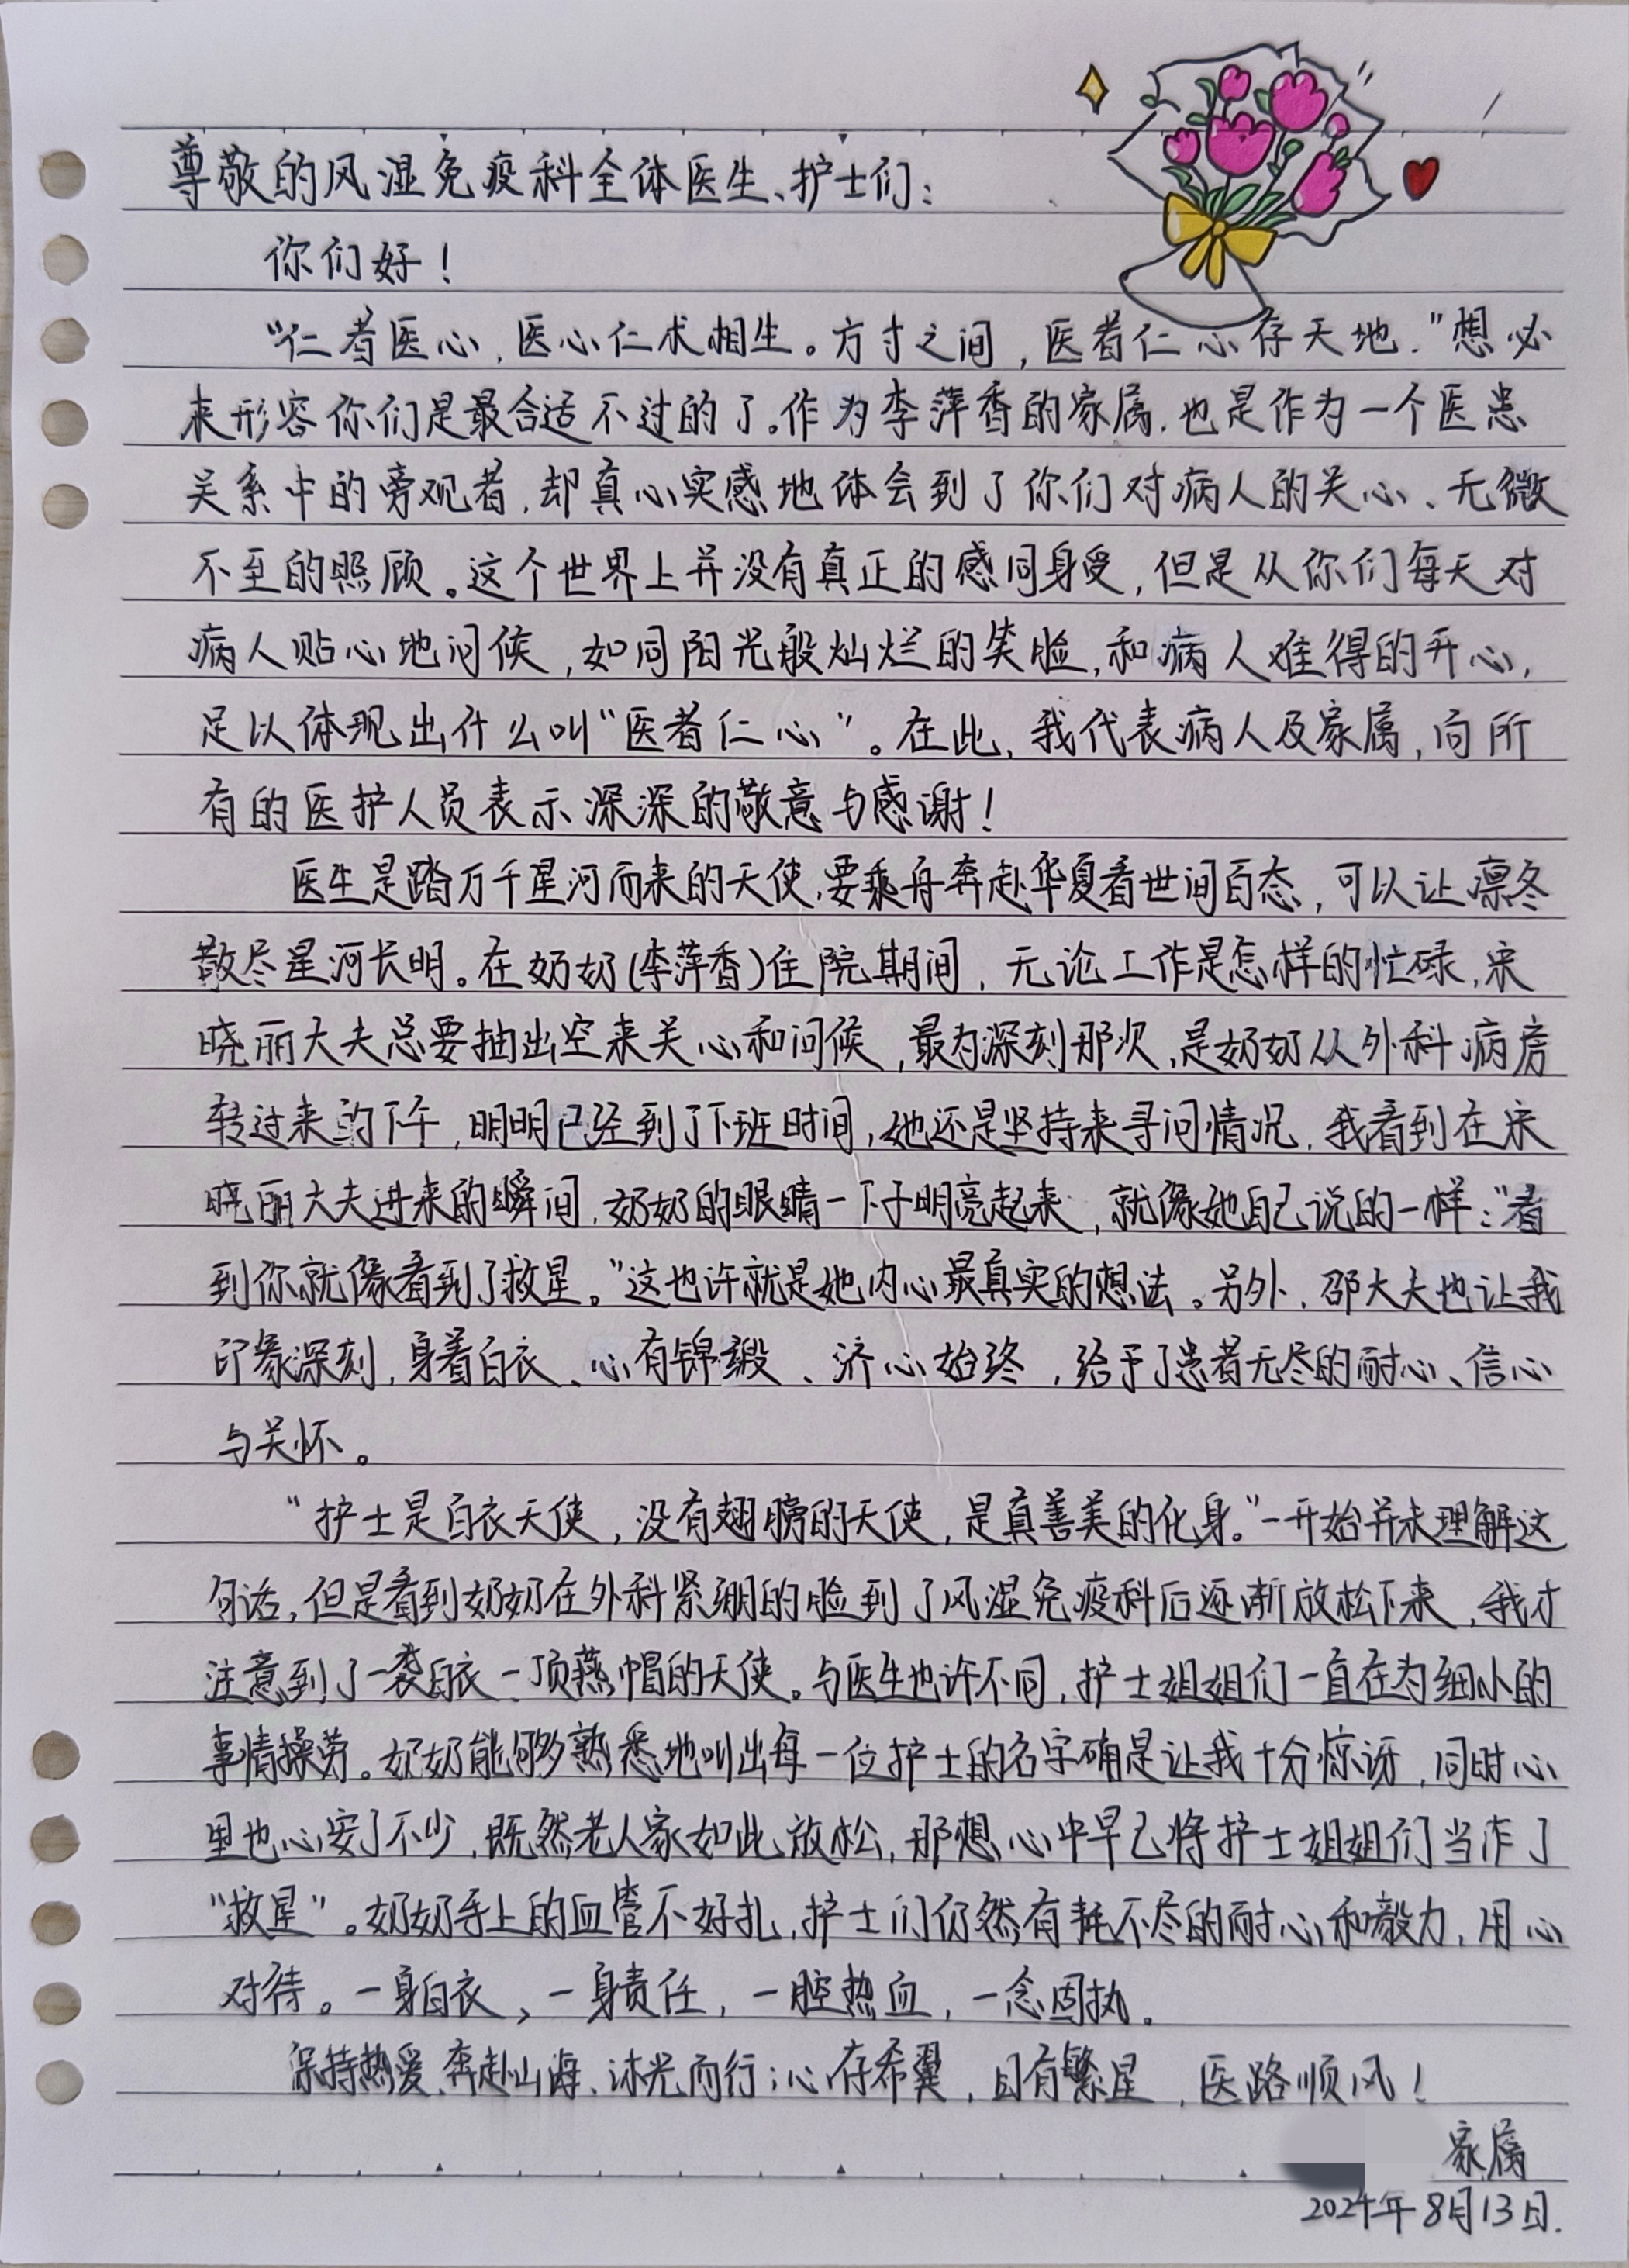 尊敬的风湿免疫科全体医生、护士们：
你们好！
“仁者医心，医心仁术相生。方寸之间，医者仁心存天地.”想必
来形容你们是最合适不过的了。作为李萍香的家属，也是作为一个医患
关系中的旁观者，却真心实感地体会到了你们对病人的关心、无微
不至的照顾。这个世界上并没有真正的感同身受，但是从你们每天对
病人贴心地问候，如同阳光般灿烂的笑脸，和病人难得的开心，
足以体现出什么叫“医者仁心”。在此，我代表病人及家属，向所
有的医护人员表示深深的敬意与感谢！
医生是踏万千星河而来的天使，要乘舟奔赴华夏看世间百态，可以让凛冬
散尽星河长明。在奶奶(李萍香)住院期间，无论工作是怎样的忙碌，宋
晓丽大夫总要抽出空来关心和问候，最为深刻那次，是奶奶从外科病房
转过来的下午，明明已经到了下班时间，她还是坚持来寻问情况，我看到在宋
晓丽大夫进来的瞬间，奶奶的眼睛一下子明亮起来，就像她自己说的一样：“看
到你就像看到了救星。”这也许就是她内心最真实的想法。另外，邵大夫也让我
印象深刻，身着白衣、心有锦缎、济心始终，给予了患者无尽的耐心、信心
与关怀。
“护士是白衣天使，没有翅膀的天使，是真善美的化身。”一开始并未理解这
句话，但是看到奶奶在外科紧绷的脸到了风湿免疫科后逐渐放松下来，我才
注意到了一袭白衣一顶燕帽的天使。与医生也许不同，护士姐姐们一直在为细小的
事情操劳。奶奶能够熟悉地叫出每一位护士的名字确是让我十分惊讶，同时心
里也心安了不少，既然老人家如此放松，那想心中早已将护士姐姐们当作了
“救星”。奶奶手上的血管不好扎，护士们仍然有耗不尽的耐心和毅力，用心
对待。一身白衣，一身责任，一腔热血，一念固执。
保持热爱、奔赴山海、沐光而行；心存希翼，目有繁星，医路顺风！
家属
2024年8月13日.